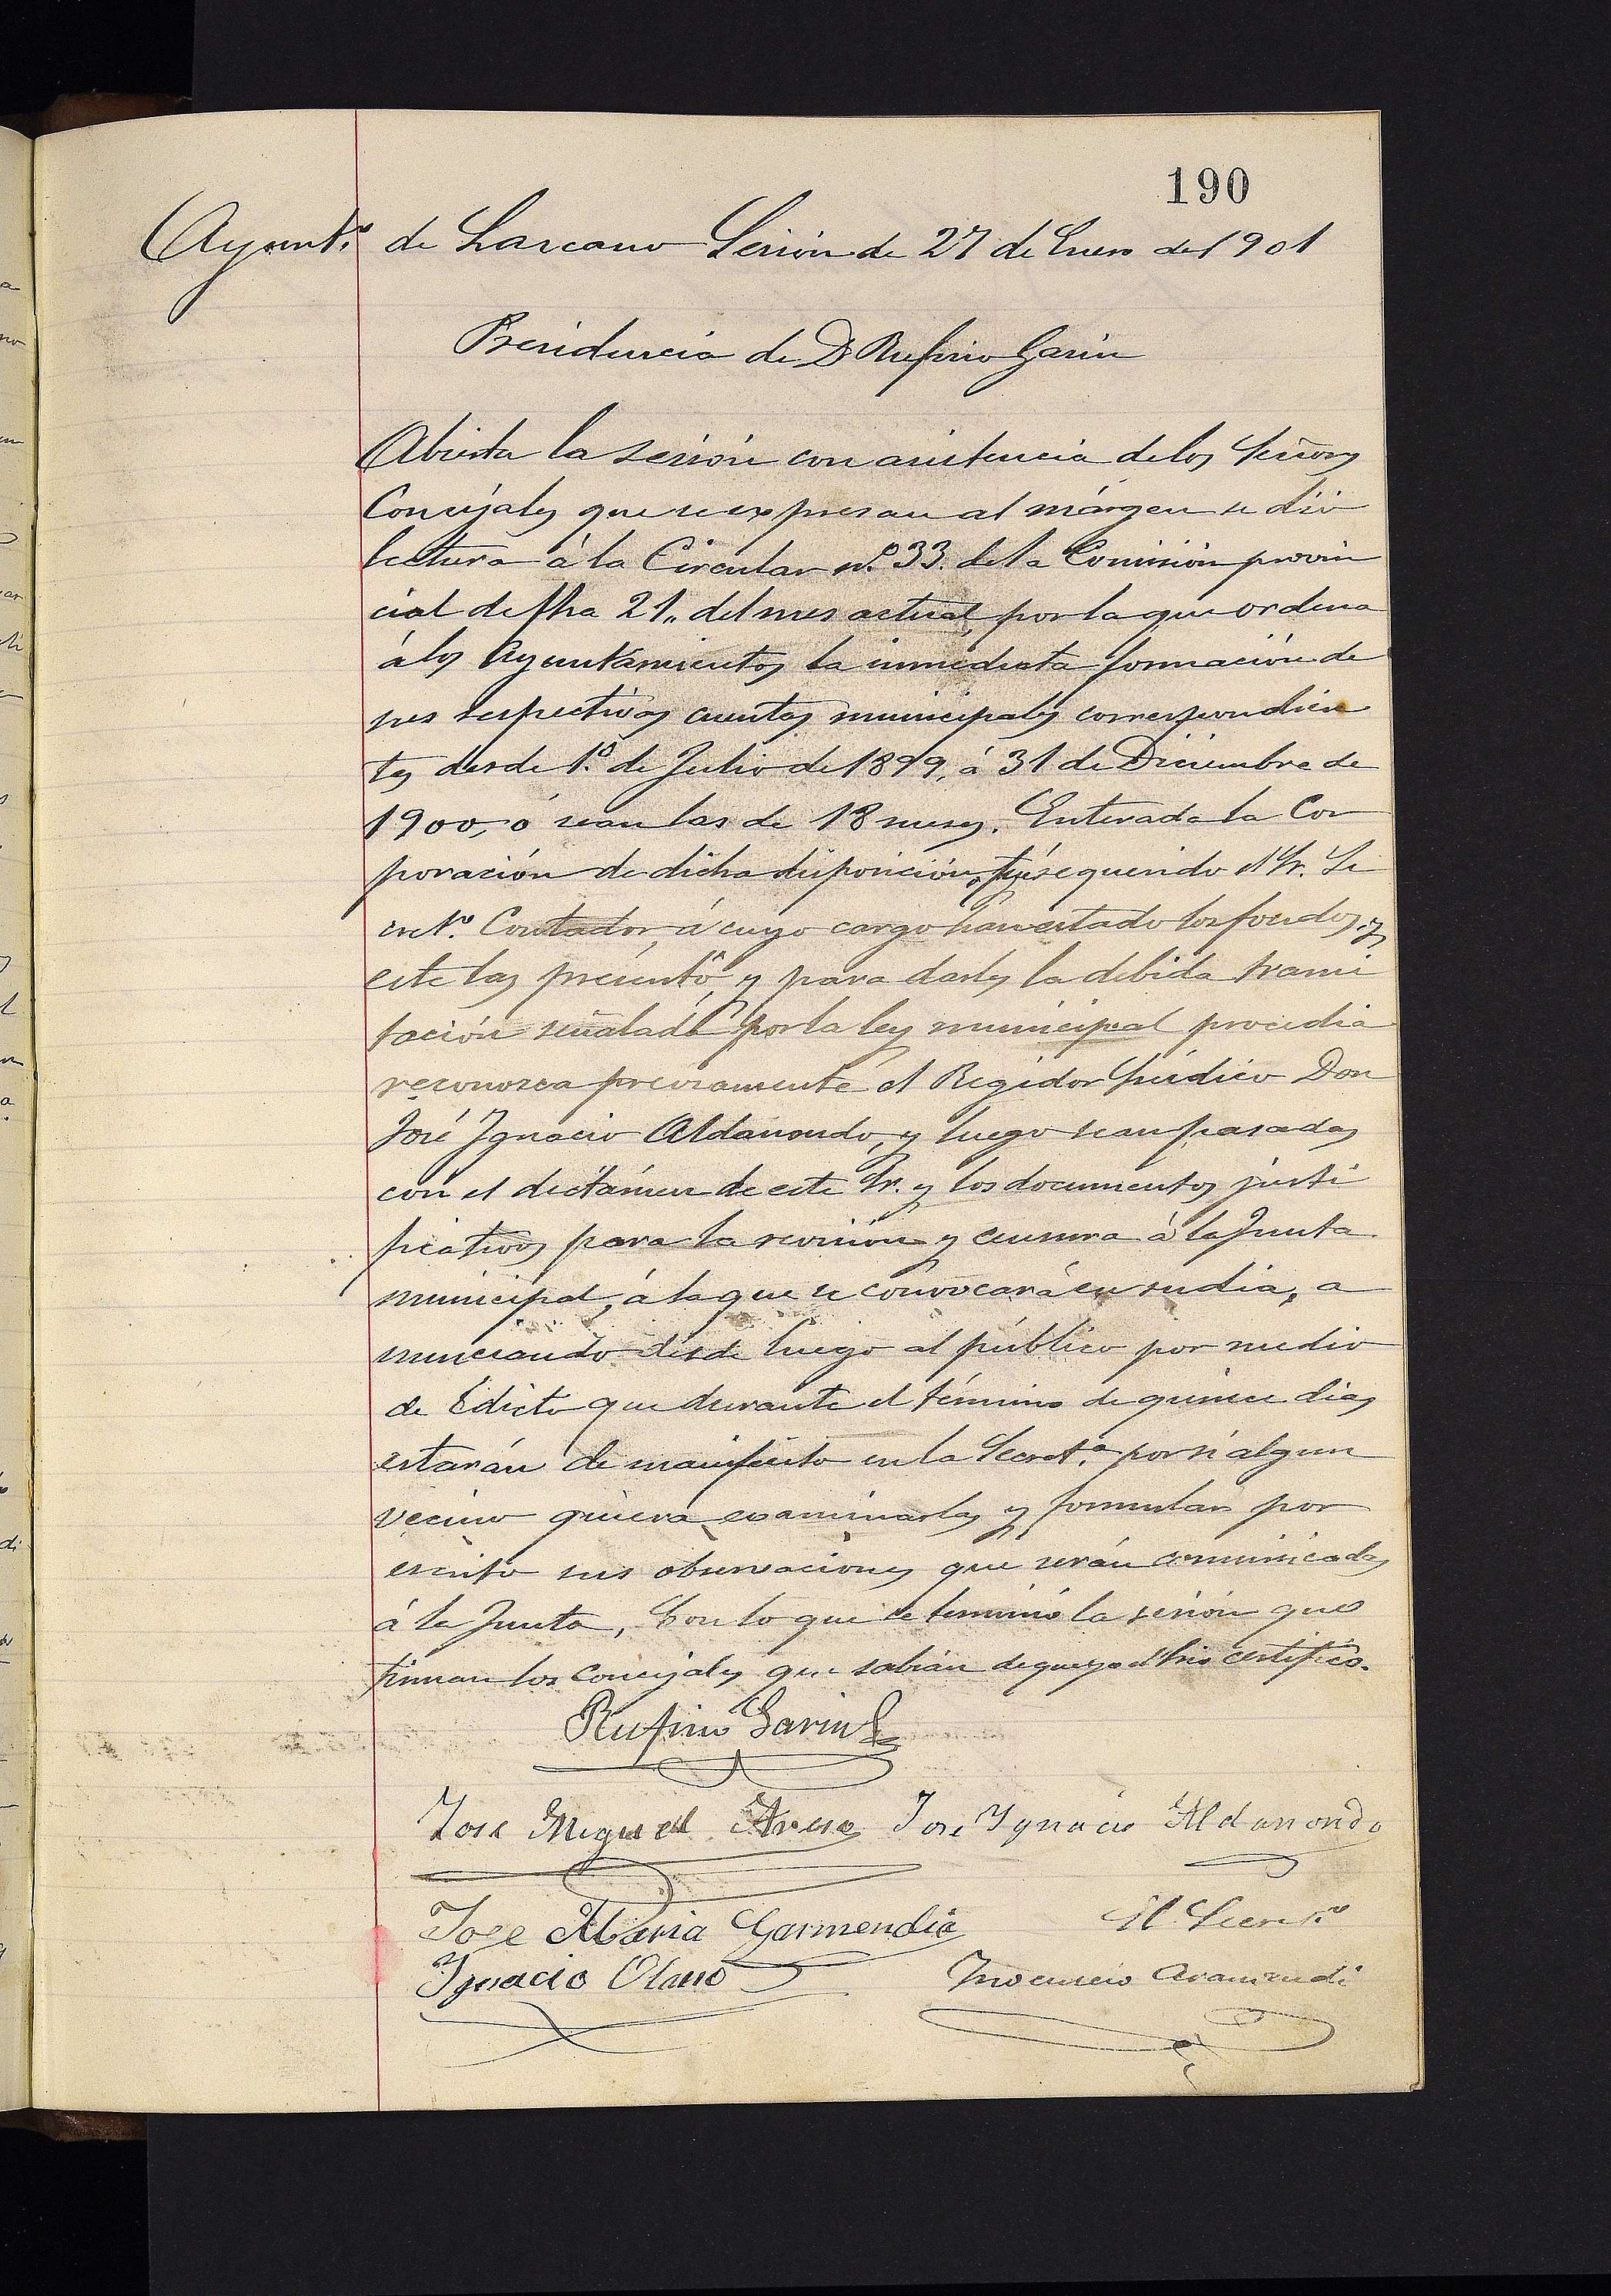 190
Ayunt.º de Lazcano Sesión de 27 de Enero de 1901
Presidencia de D Rufino Garin
Abierta la sesión con asistencia de los Señores
Concejales que se expresan al márgen se dió
lectura á la Circular n.º 33. de la Comisión provin
cial de fha 21,, del mes actual, por la que ordena
á los Ayuntamientos la inmediata formación de
sus respectivas cuentas municipales correspondien
tes desde 1.º de Julio de 1899, á 31 de Diciembre de
1900, ó sean las de 18 meses. Enterada la Cor
poración de dicha disposición, fué requerido el Sr. Se
cret.º Contador á cuyo cargo han estado los fondos, y
este las presentó, y para darles la debida trami
tación señalada por la ley municipal procedia
reconozca previamente el Regidor Síndico Don
José Ignacio Aldanondo, y luego sean pasadas
con el dictámen de este Sr. y los documentos justi
ficativos para la revisión y censura á la Junta
municipal, á la que se convocará en su dia, a
nunciando desde luego al público por medio
de Edicto que durante el término de quince dias
estarán de manifiesto en la Secret.ª por si algun
vecino quiera examinarlas y formular por
escrito sus observaciones que serán comunicadas
á la Junta. Con lo que se terminó la sesión que
firman los concejales que sabían de que yo el Srio certifico.
Rufino Garin
Jose Miguel Jose Ignacio Aldanondo
Jose Maria Garmendia El Secret.º
Ignacio Olano Inocencio Aramendi